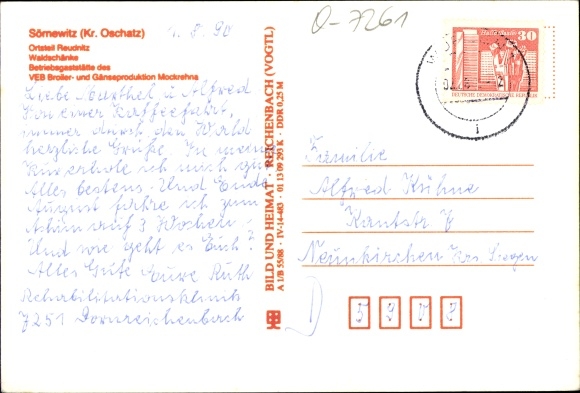 Sörnewitz (Kr. Oschatz)
Ortsteil Reudnitz
Waldschänke
Betriebsgaststätte des
VEB Broiler- und Gänseproduktion Mockrehna
1.8.90
Liebe Marthel u. Alfred
Von einer Kaffeefahrt,
immer durch den Wald
herzliche Grüße. In meiner
Kur erhole ich mich gut
Alles bestens. Und Ende
August fahre ich zum
Achim auf 3 Wochen.
Und wie geht es Euch?
Alles Gute Eure Ruth
Rehabilitationsklinik
7251 Dornreichenbach
BILD UND HEIMAT · REICHENBACH (VOGTL)
A 1/B 55/88 · IV-14-483 · 01 13 09 293 K · DDR 0,25 M
O-7261
30
DEUTSCHE DEMOKRATISCHE REPUBLIK
Familie
Alfred Kühne
Kantstr 8
Neunkirchen Krs Siegen
D
5908